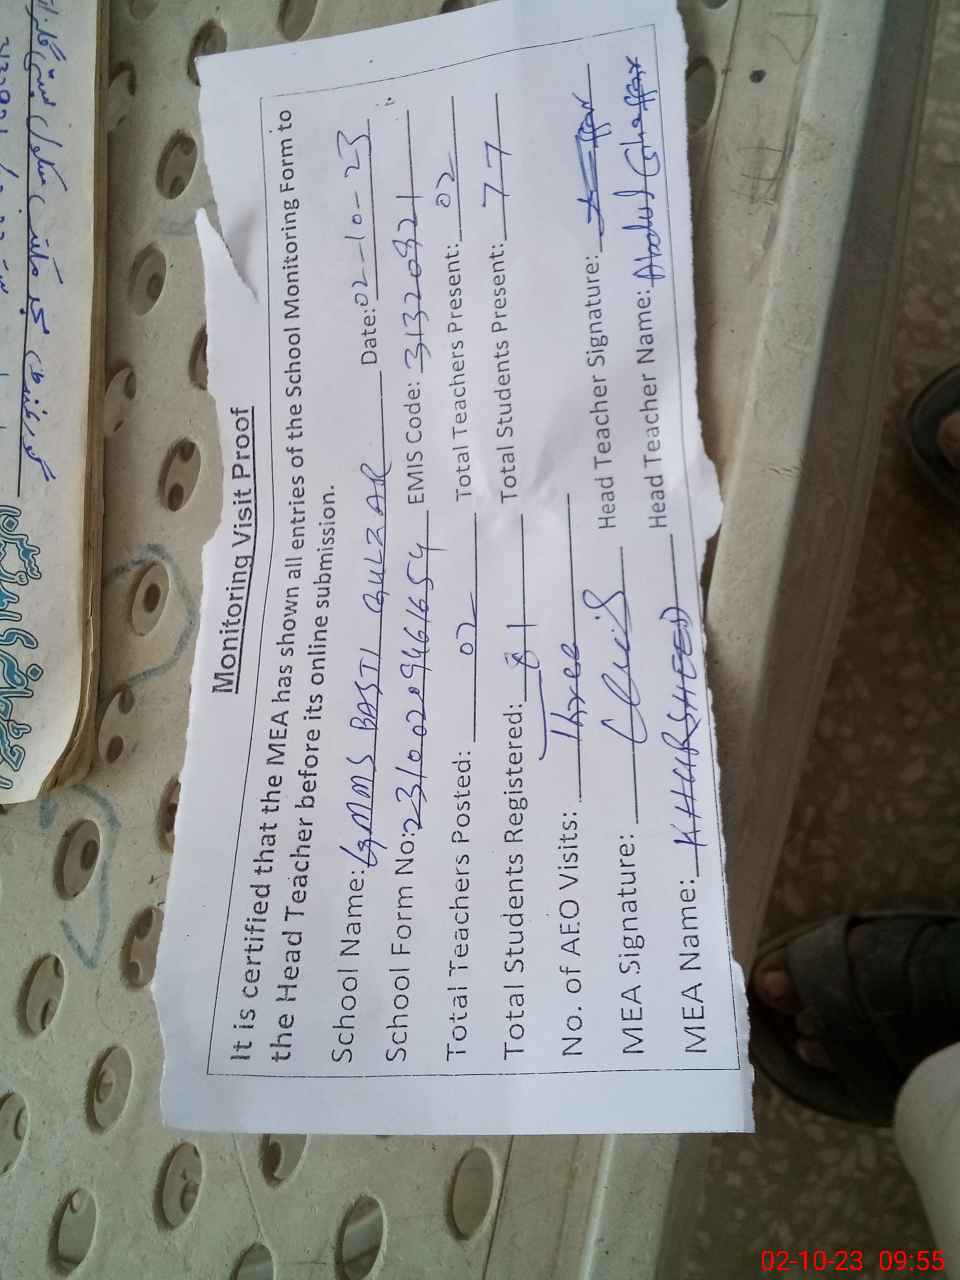 Monitoring Visit Proof
It is certified that the MEA has shown all entries of the School Monitoring Form to
the Head Teacher before its online submission.
School Name: GMMS BASTI GULZAR Date: 02-10-23
School Form No: 231002094661654 EMIS Code: 31320921
Total Teachers Posted: 02 Total Teachers Present: 02
Total Students Registered: 81 Total Students Present: 77
No. of AEO Visits: Three
MEA Signature: Head Teacher Signature:
MEA Name: KHURSHEED Head Teacher Name: Abdul Ghaffar
02-10-23 09:55